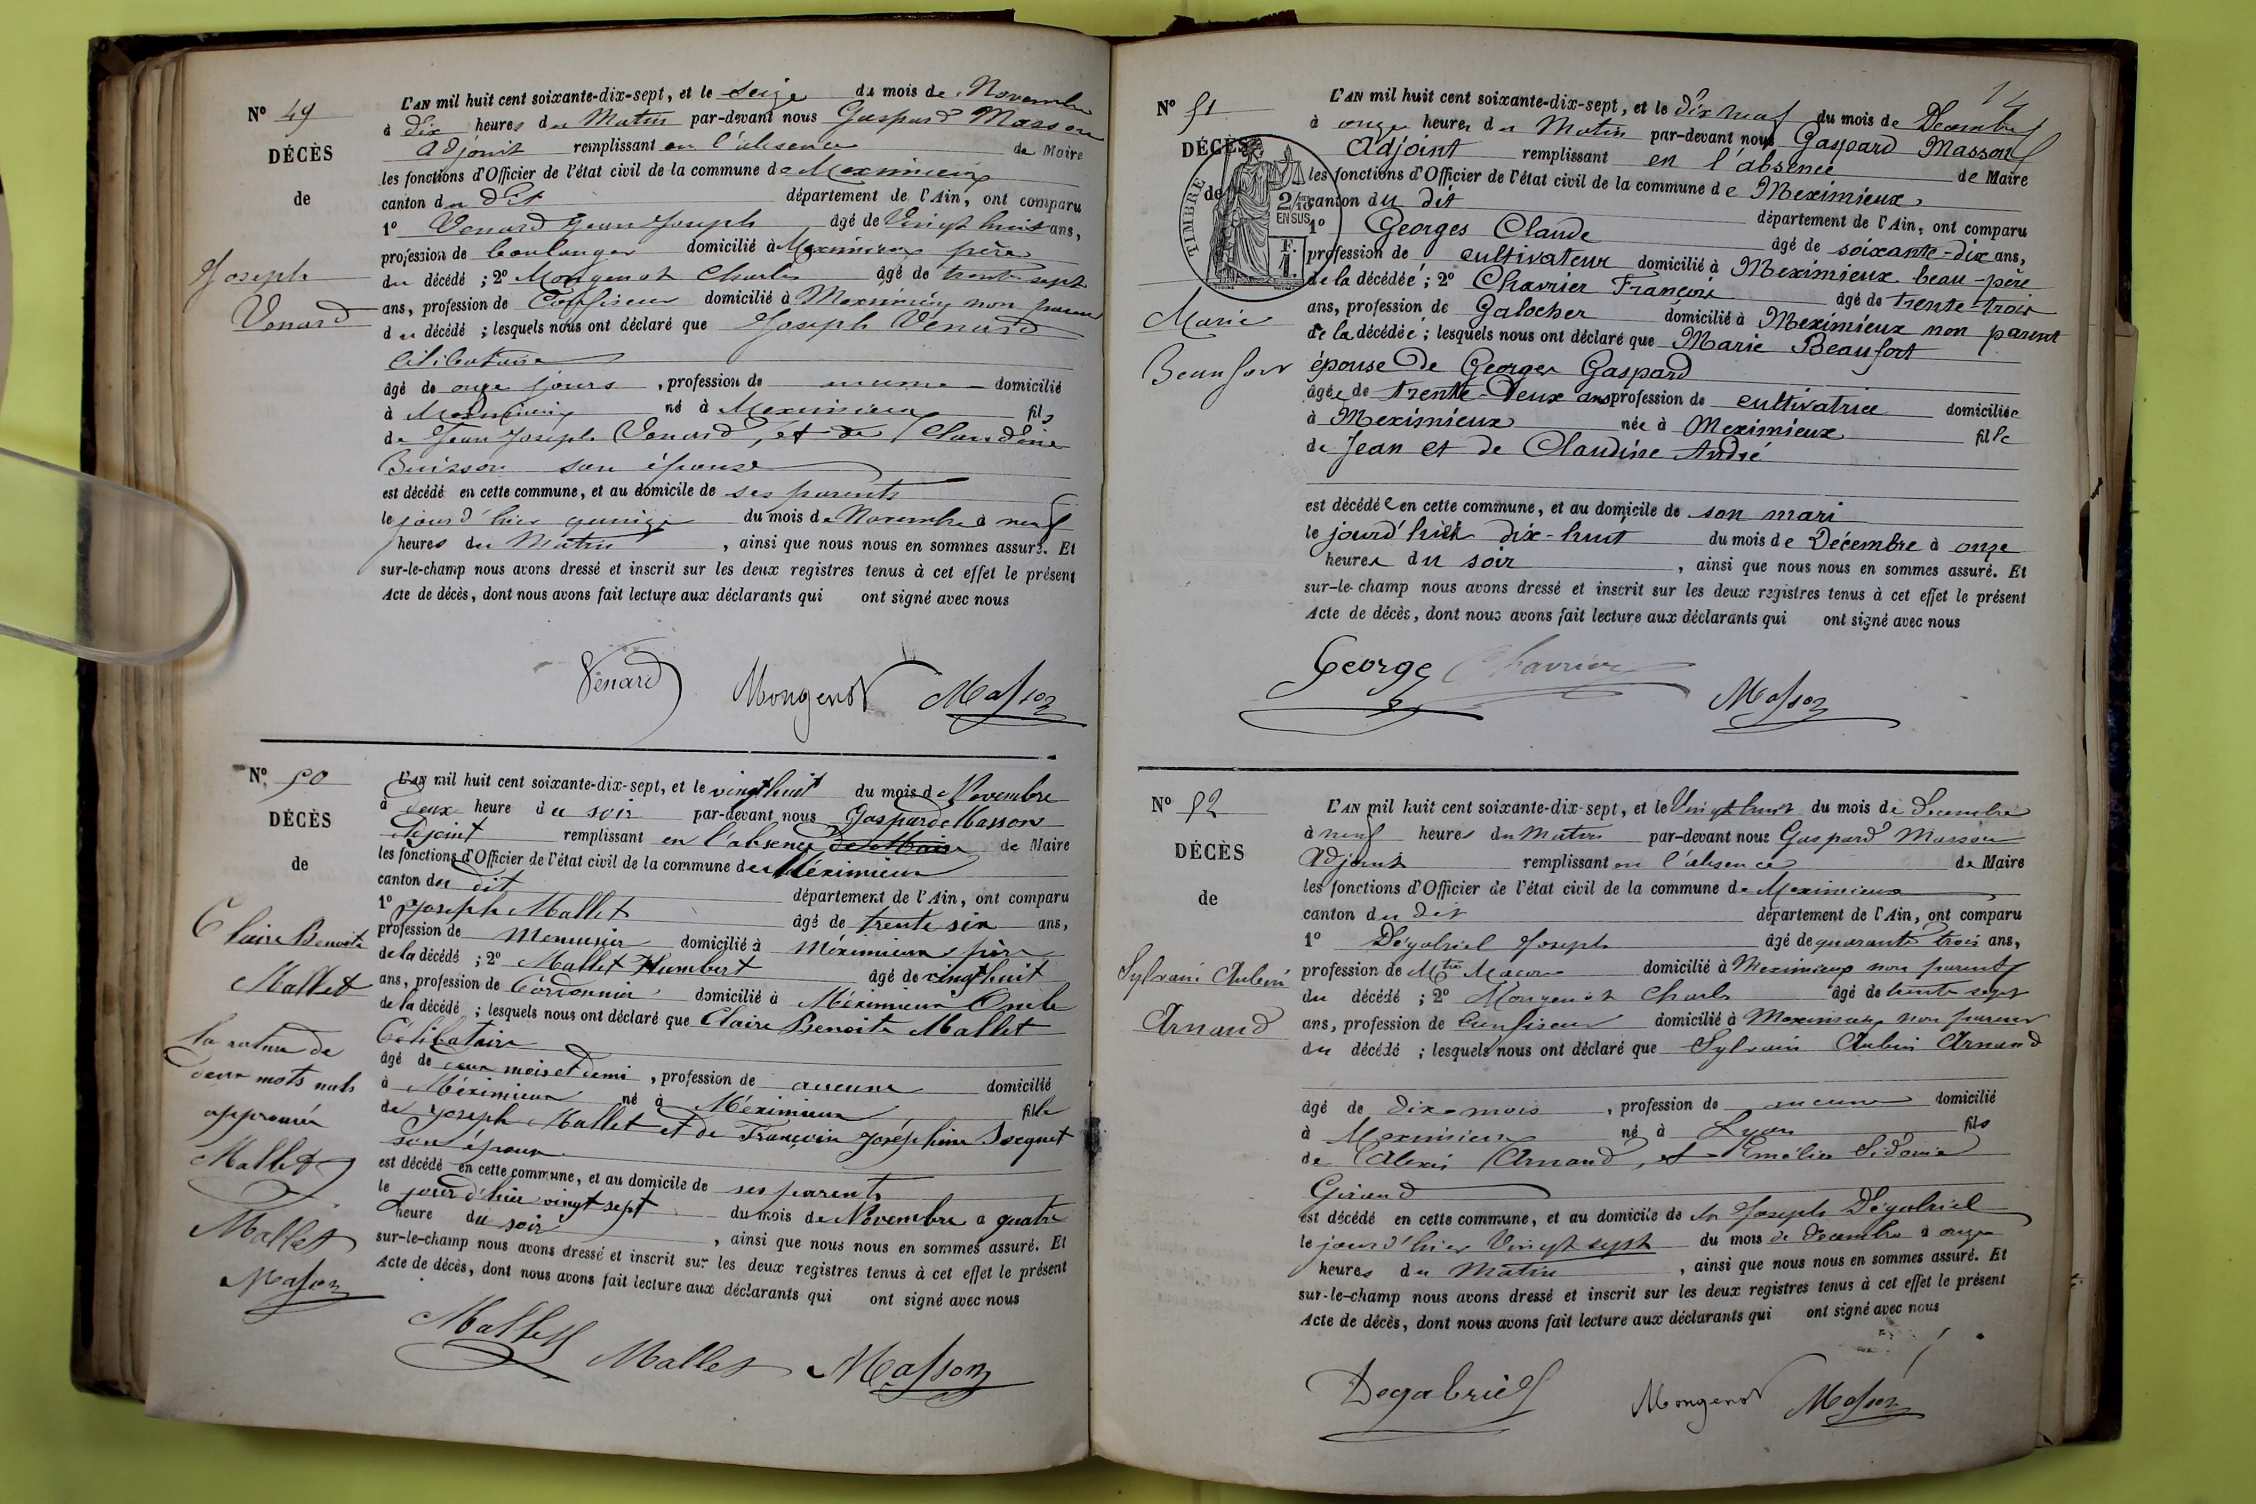 N° 49
DÉCÈS
de
Joseph
Venard
L'AN mil huit cent soixante-dix-sept, et le seize du mois de Novembre
à dix heures du Matin par-devant nous Gaspard Masson
adjoint remplissant en l'absence de Maire
les fonctions d'Officier de l'état civil de la commune de Meximieux
canton du dit département de l'Ain, ont comparu
1° Venard Jean Joseph âgé de Vingt huit ans,
profession de boulanger domicilié à Meximieux père
du décédé ; 2° Mongenot Charles âgé de trente sept
ans, profession de Confiseur domicilié à Meximieux non parent
du décédé ; lesquels nous ont déclaré que Joseph Venard
Célibataire
âgé de onze jours , profession de aucune domicilié
à Meximieux né à Meximieux fils
de Jean Joseph Venard, et de Claudine
Buisson son épouse
est décédé en cette commune, et au domicile de ses parents
le jour d'hier quinze du mois de Novembre à neuf
heures du Matin , ainsi que nous nous en sommes assuré. Et
sur-le-champ nous avons dressé et inscrit sur les deux registres tenus à cet effet le présent
Acte de décès, dont nous avons fait lecture aux déclarants qui ont signé avec nous
Venard Mongenot Masson
N° 50
DÉCÈS
de
Claire Benoite
Mallet
la rature de
deux mots nuls
approuvée
Mallet
Mallet
Masson
L'AN mil huit cent soixante-dix-sept, et le vingt huit du mois de Novembre
à deux heure du soir par-devant nous Gaspard Masson
Adjoint remplissant en l'absence de Maire
les fonctions d'Officier de l'état civil de la commune de Méximieux
canton du dit département de l'Ain, ont comparu
1° Joseph Mallet âgé de trente six ans,
profession de Menuisier domicilié à Méximieux père
de la décédé ; 2° Mallet Humbert âgé de vingt huit
ans, profession de Cordonnier domicilié à Méximieux Oncle
de la décédé ; lesquels nous ont déclaré que Claire Benoite Mallet
Célibataire
âgé de mois et demi , profession de aucune domicilié
à Méximieux né à Méximieux fille
de Joseph Mallet et de Françoise Joséphine Socquet
son épouse
est décédé en cette commune, et au domicile de ses parents
le jour d'hier vingt sept du mois de Novembre à quatre
heure du soir , ainsi que nous nous en sommes assuré. Et
sur-le-champ nous avons dressé et inscrit sur les deux registres tenus à cet effet le présent
Acte de décès, dont nous avons fait lecture aux déclarants qui ont signé avec nous
Mallet Mallet Masson
14
N° 51
DÉCÈS
de
TIMBRE
2/10 EN SUS
F. 1.
Marie
Beaufort
L'AN mil huit cent soixante-dix-sept, et le dix neuf du mois de Decembre
à onze heures du Matin par-devant nous Gaspard Masson
Adjoint remplissant en l'absence de Maire
les fonctions d'Officier de l'état civil de la commune de Meximieux
canton du dit département de l'Ain, ont comparu
1° Georges Claude âgé de soixante-dix ans,
profession de cultivateur domicilié à Meximieux beau-père
de la décédée ; 2° Chavrier François âgé de trente-trois
ans, profession de Galocher domicilié à Meximieux non parent
de la décédée ; lesquels nous ont déclaré que Marie Beaufort
épouse de Georges Gaspard
âgée de trente-deux ans profession de cultivatrice domiciliée
à Meximieux née à Meximieux fille
de Jean et de Claudine André
est décédée en cette commune, et au domicile de son mari
le jourd'hier dix-huit du mois de Décembre à onze
heures du soir , ainsi que nous nous en sommes assuré. Et
sur-le-champ nous avons dressé et inscrit sur les deux registres tenus à cet effet le présent
Acte de décès, dont nous avons fait lecture aux déclarants qui ont signé avec nous
George Chavrier Masson
N° 52
DÉCÈS
de
Sylvain Aubin
Arnaud
L'AN mil huit cent soixante-dix-sept, et le Vingt huit du mois de Decembre
à neuf heures du Matin par-devant nous Gaspard Masson
Adjoint remplissant en l'absence de Maire
les fonctions d'Officier de l'état civil de la commune de Meximieux
canton du dit département de l'Ain, ont comparu
1° Dégabriel Joseph âgé de quarante trois ans,
profession de Mtre Maçon domicilié à Meximieux non parent
du décédé ; 2° Mongenot Charles âgé de trente sept
ans, profession de Confiseur domicilié à Meximieux non parent
du décédé ; lesquels nous ont déclaré que Sylvain Aubin Arnaud
âgé de dix mois , profession de aucune domicilié
à Meximieux né à Lyon fils
de Alexis Arnaud, et Emélie Sidonie
Giraud
est décédé en cette commune, et au domicile de Joseph Dégabriel
le jour d'hier Vingt sept du mois de decembre à onze
heures du Matin , ainsi que nous nous en sommes assuré. Et
sur-le-champ nous avons dressé et inscrit sur les deux registres tenus à cet effet le présent
Acte de décès, dont nous avons fait lecture aux déclarants qui ont signé avec nous
Degabriel Mongenot Masson